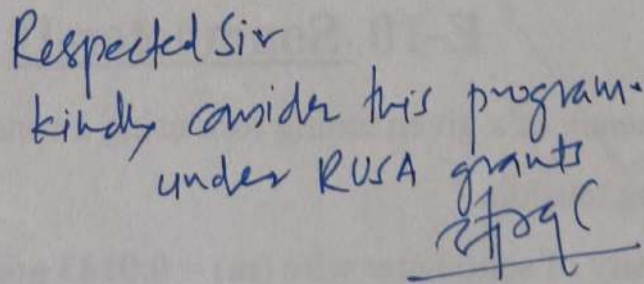 Respected Sir
kindly consider this program.
under RUSA grants